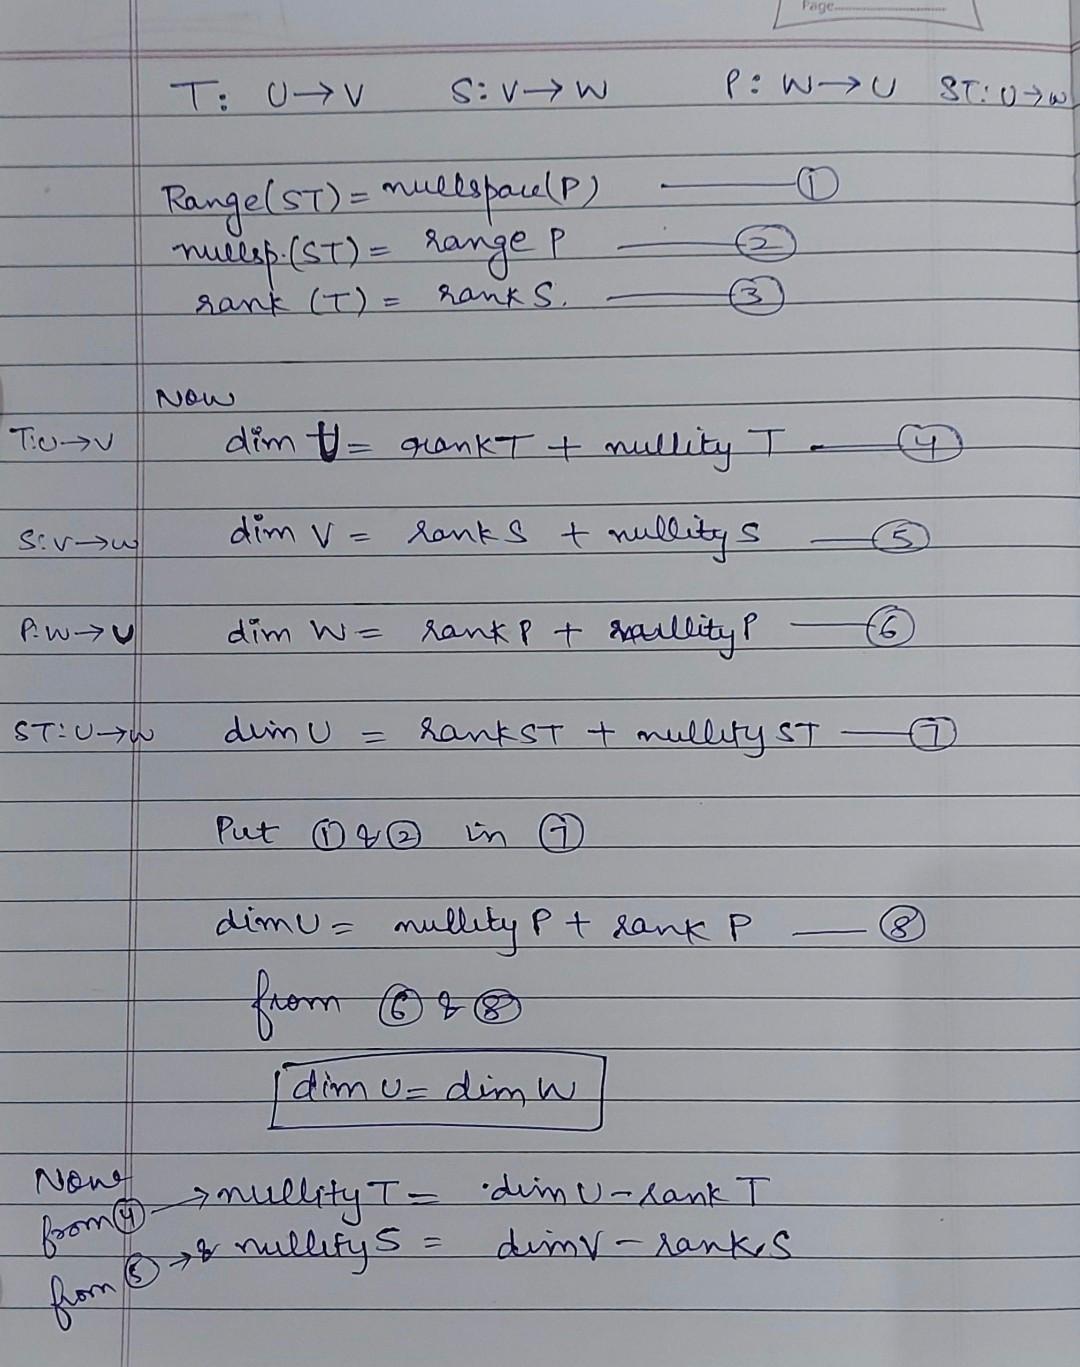 Page
T: U→V S: V→W P: W→U ST: U→W
Range(ST) = nullspace(P) — ①
nullsp.(ST) = range P — ②
rank (T) = rank S. — ③
Now
T:U→V dim U = rank T + nullity T — ④
S:V→W dim V = rank S + nullity S — ⑤
P:W→U dim W = rank P + nullity P — ⑥
ST:U→W dim U = rank ST + nullity ST — ⑦
Put ① & ② in ⑦
dim U = nullity P + rank P — ⑧
from ⑥ & ⑧
dim U = dim W
Now
from ④ → nullity T = dim U - rank T
from ⑤ → & nullity S = dim V - rank S